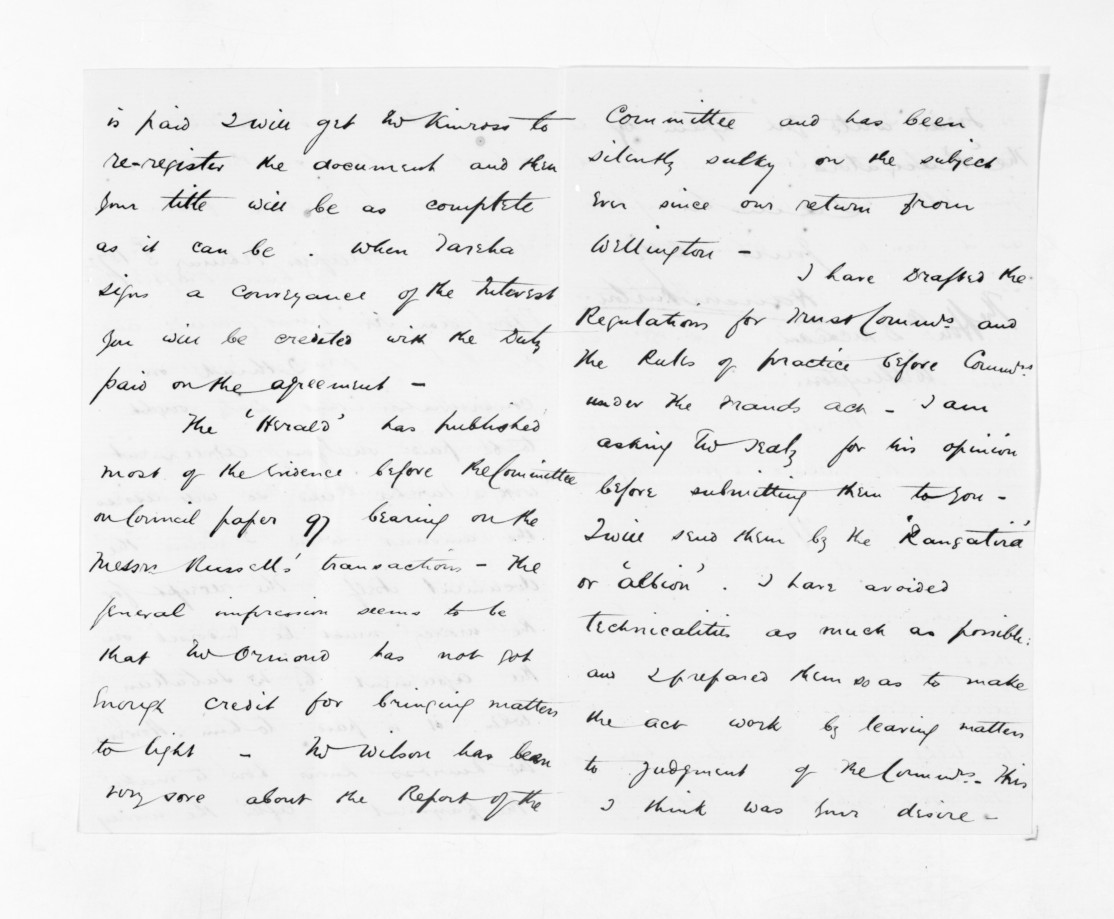 is paid I will get Mr Kinross to
re-register the document and then
your title will be as complete
as it can be. When Tareha
signs a conveyance of the Interest
you will be credited with the Duty
paid on the agreement —
The 'Herald' has published
most of the Evidence before the Committee
on Council paper 97 bearing on the
Messrs Russell's transactions — The
general impression seems to be
that Mr Ormond has not got
Enough credit for bringing matters
to light — Mr Wilson has been
very sore about the Report of the
Committee and has been
silently sulky on the subject
Ever since our return from
Wellington —
I have Drafted the
Regulations for Trust Commrs and
the Rules of practice before Commrs
under the Frauds act — I am
asking Mr Sealy for his opinion
before submitting them to you —
I will send them by the 'Rangatira'
or 'Albion'. I have avoided
technicalities as much as possible:
and I prepared them so as to make
the act work by leaving matters
to judgment of the Commrs — This
I think was your desire —